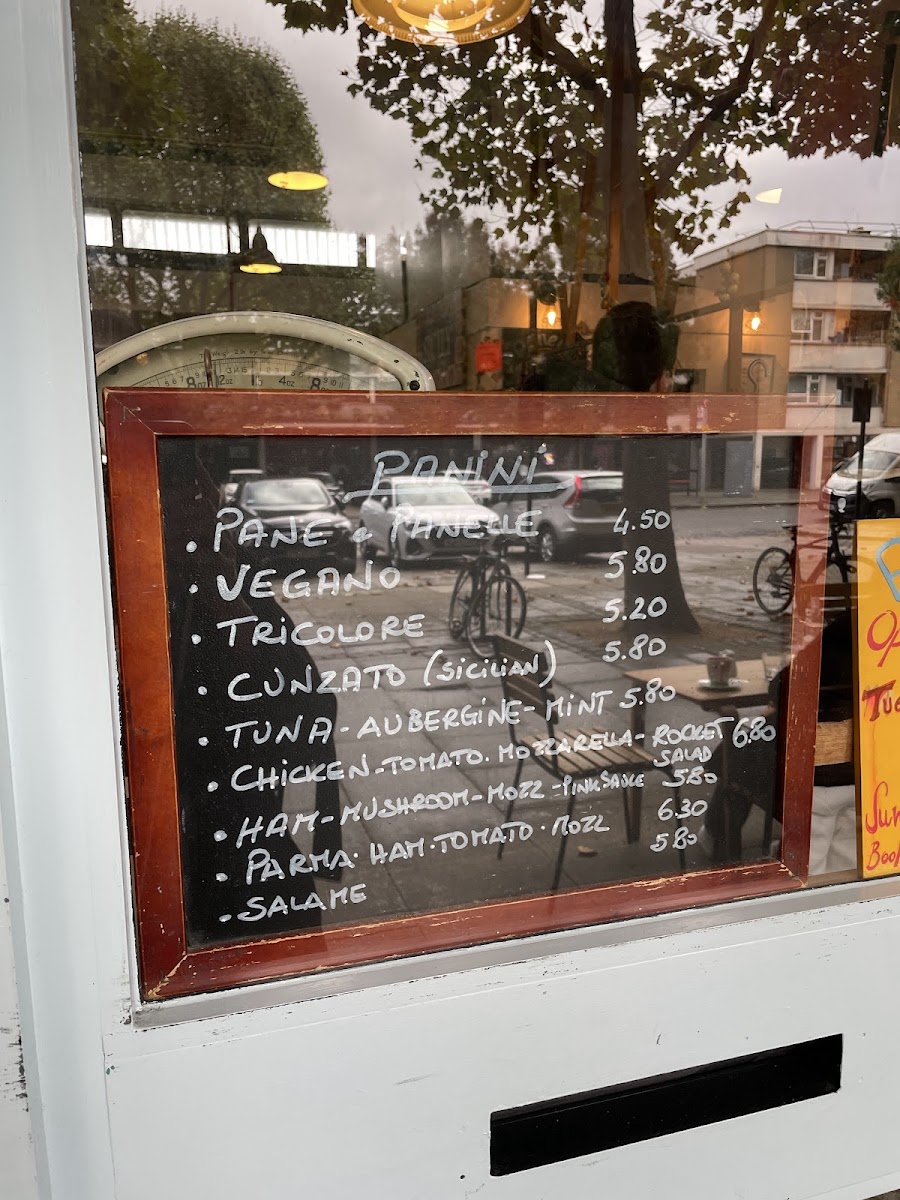 PANINI
• PANE e PANELLE 4.50
• VEGANO 5.80
• TRICOLORE 5.20
• CUNZATO (SICILIAN) 5.80
• TUNA - AUBERGINE - MINT 5.80
• CHICKEN - TOMATO. MOZZARELLA - ROCKET SALAD 6.80
• HAM - MUSHROOM - MOZZ - PINK SAUCE 5.80
• PARMA. HAM. TOMATO. MOZZ 6.30
• SALAME 5.80